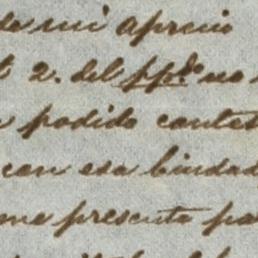 de mi aprecio
2. del ppdo no
podido contes
con esa bondad
me presenta pa